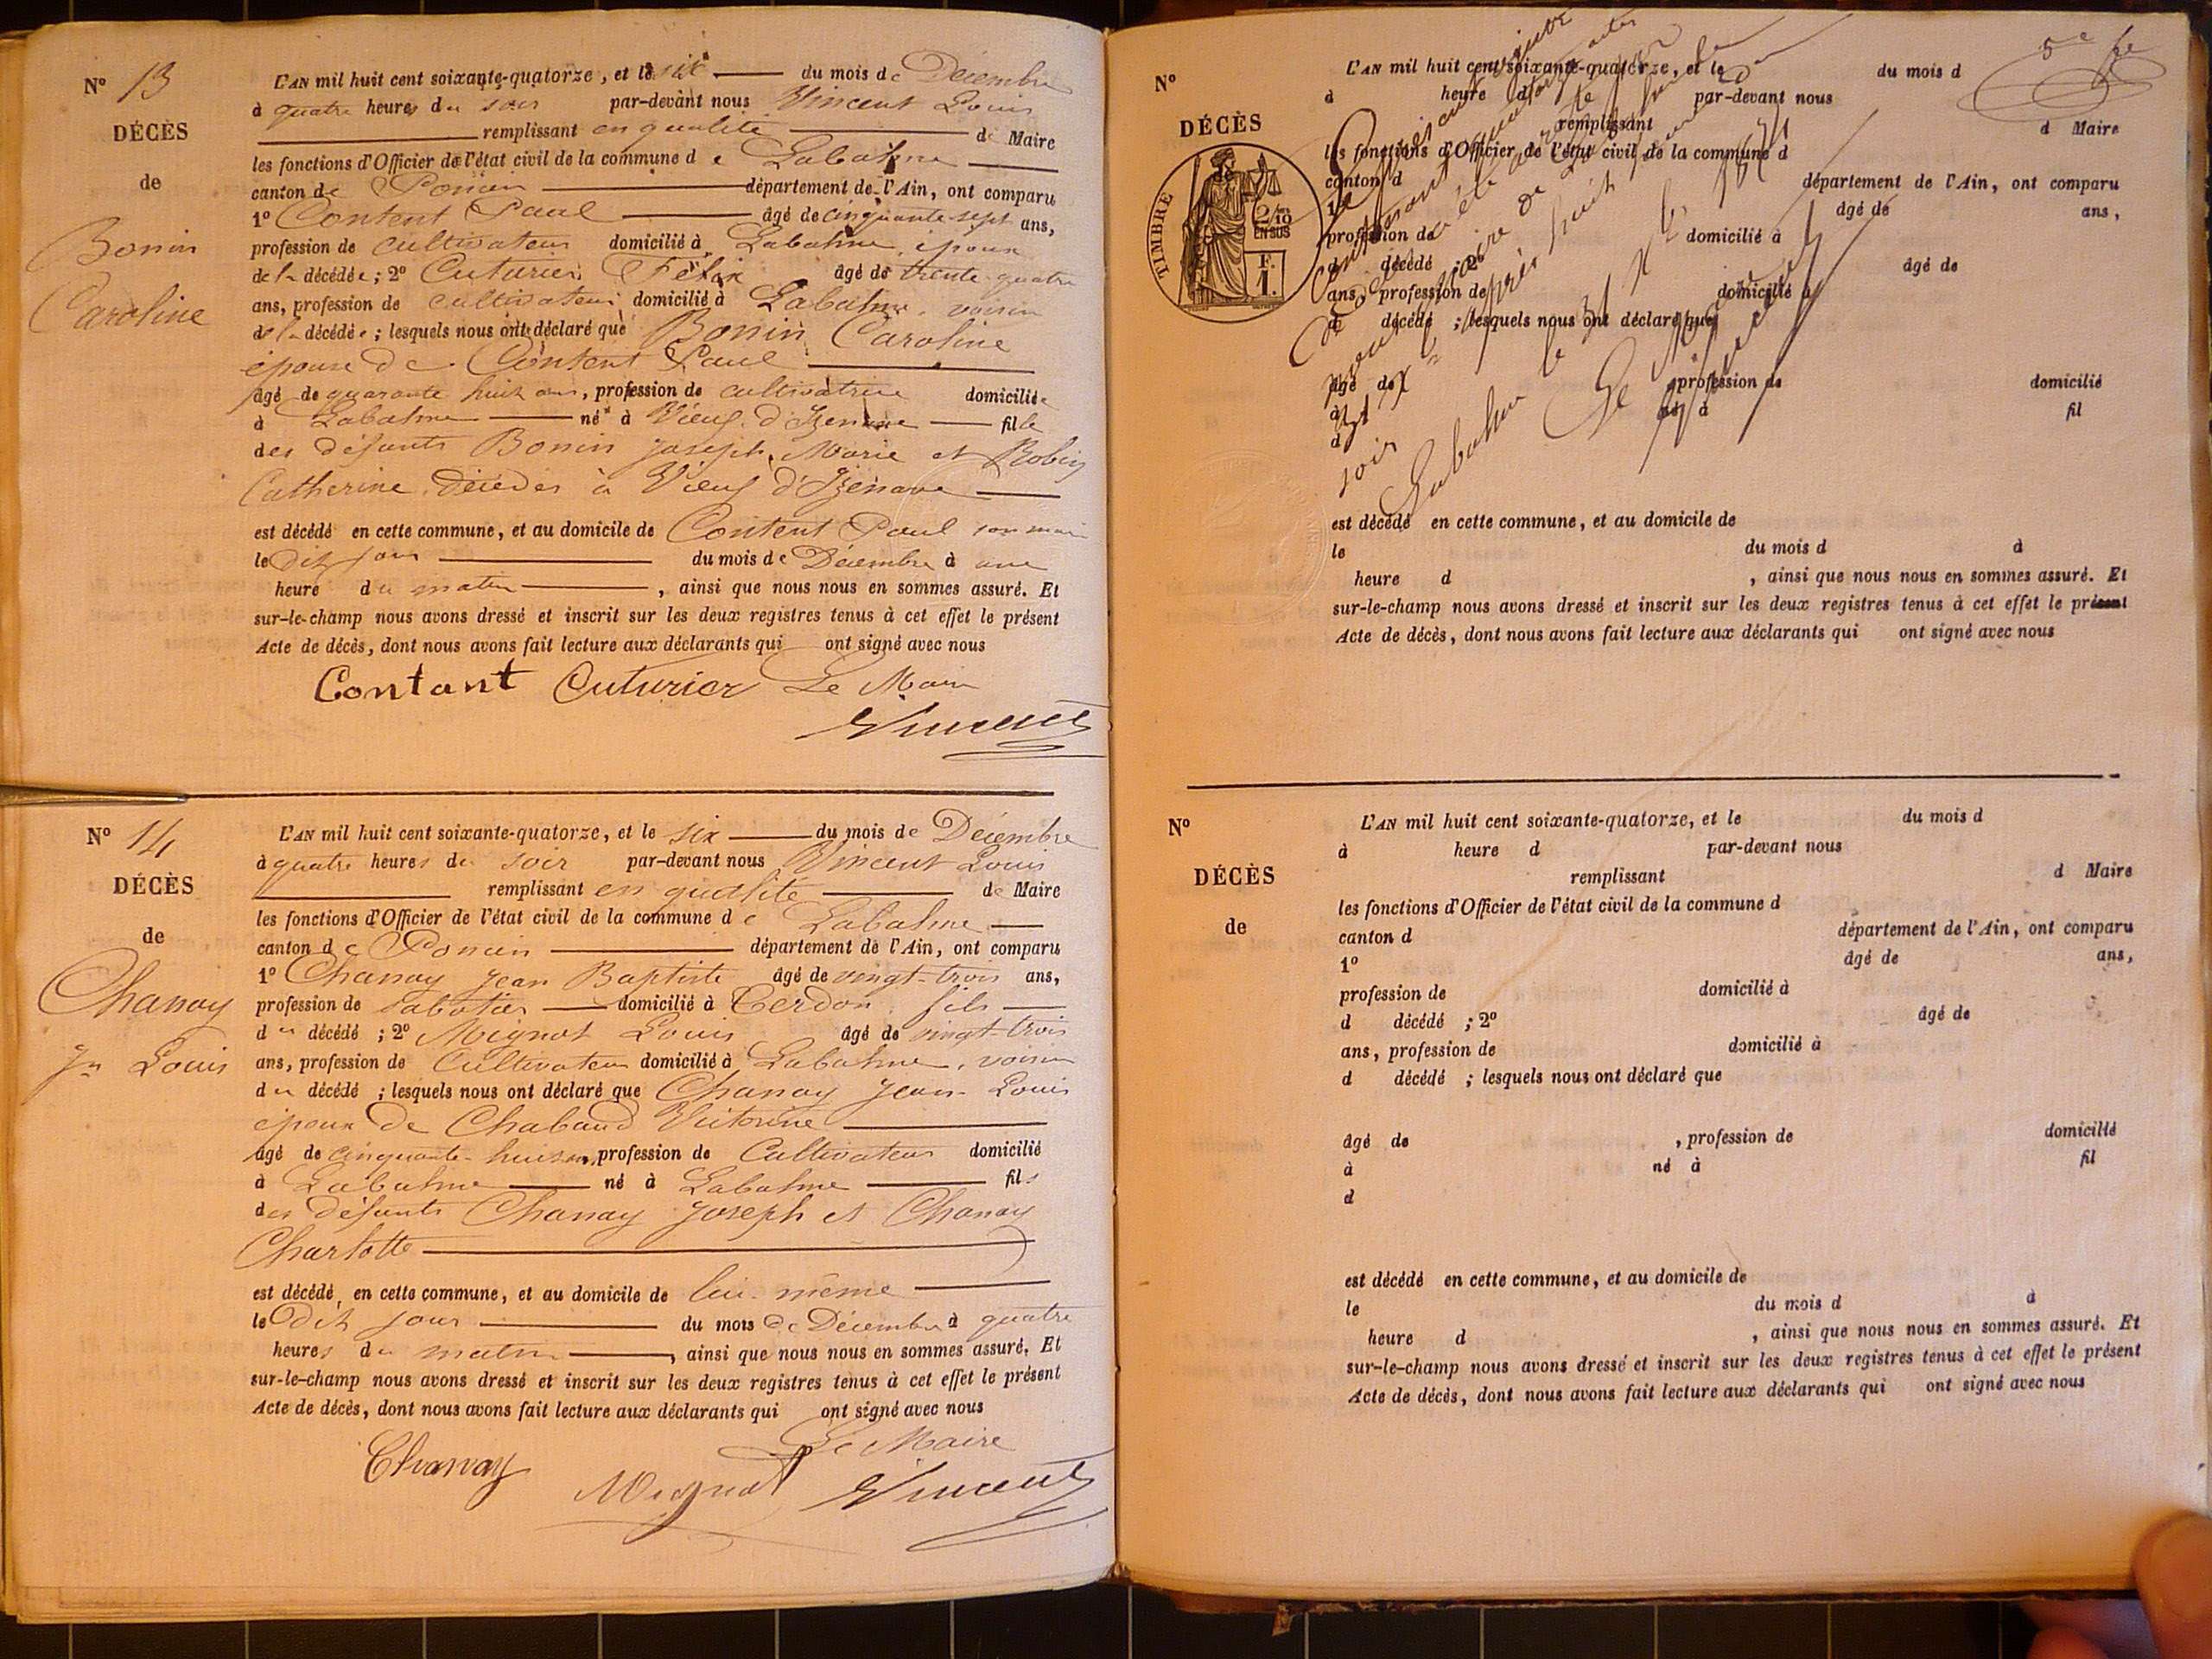 N° 13
DÉCÈS
de
Bonin
Caroline
L'AN mil huit cent soixante-quatorze, et le six du mois de Décembre
à quatre heures du soir par-devant nous Vincent Louis
remplissant en qualité de Maire
les fonctions d'Officier de l'état civil de la commune de Labalme
canton de Poncin département de l'Ain, ont comparu
1° Content Paul âgé de cinquante-sept ans,
profession de cultivateur domicilié à Labalme, époux
de la décédée ; 2° Cuturier Félix âgé de trente-quatre
ans, profession de cultivateur domicilié à Labalme, voisin
de la décédée ; lesquels nous ont déclaré que Bonin Caroline
épouse de Content Paul
âgé de quarante huit ans, profession de cultivatrice domiciliée
à Labalme né à Vieux d'Izenave fille
des défunts Bonin Joseph, Marie et Robin
Catherine, Décédés à Vieux d'Izenave
est décédé en cette commune, et au domicile de Content Paul son mari
le Dit jour du mois de Décembre à une
heure du matin, ainsi que nous nous en sommes assuré. Et
sur-le-champ nous avons dressé et inscrit sur les deux registres tenus à cet effet le présent
Acte de décès, dont nous avons fait lecture aux déclarants qui ont signé avec nous
Contant Cuturier Le Maire
Vincent
N° 14
DÉCÈS
de
Chanay
Jn Louis
L'AN mil huit cent soixante-quatorze, et le six du mois de Décembre
à quatre heures du soir par-devant nous Vincent Louis
remplissant en qualité de Maire
les fonctions d'Officier de l'état civil de la commune de Labalme
canton de Poncin département de l'Ain, ont comparu
1° Chanay Jean Baptiste âgé de vingt-trois ans,
profession de sabotier domicilié à Cerdon, fils
du décédé ; 2° Mignot Louis âgé de vingt-trois
ans, profession de Cultivateur domicilié à Labalme, voisin
du décédé ; lesquels nous ont déclaré que Chanay Jean-Louis
époux de Chabaud Victorine
âgé de cinquante-huit ans, profession de Cultivateur domicilié
à Labalme né à Labalme fils
des défunts Chanay Joseph et Chanay
Charlotte
est décédé en cette commune, et au domicile de lui-même
le Dit jour du mois de Décembre à quatre
heures du matin, ainsi que nous nous en sommes assuré. Et
sur-le-champ nous avons dressé et inscrit sur les deux registres tenus à cet effet le présent
Acte de décès, dont nous avons fait lecture aux déclarants qui ont signé avec nous
Le Maire
Chanay Mignot Vincent
5e fe
N°
DÉCÈS
TIMBRE
2/10
EN SUS
F.
1.
L'AN mil huit cent soixante-quatorze, et le du mois d
à heure d par-devant nous
remplissant d Maire
les fonctions d'Officier de l'état civil de la commune d
canton d département de l'Ain, ont comparu
1° âgé de ans,
profession de domicilié à
d décédé ; 2° âgé de
ans, profession de domicilié à
d décédé ; lesquels nous ont déclaré que
âgé de profession de domicilié
à né à fil
d
soir
Labalme le 31 Xbre 1874
Le Maire
est décédé en cette commune, et au domicile de
le du mois d à
heure d , ainsi que nous nous en sommes assuré. Et
sur-le-champ nous avons dressé et inscrit sur les deux registres tenus à cet effet le présent
Acte de décès, dont nous avons fait lecture aux déclarants qui ont signé avec nous
N°
DÉCÈS
de
L'AN mil huit cent soixante-quatorze, et le du mois d
à heure d par-devant nous
remplissant d Maire
les fonctions d'Officier de l'état civil de la commune d
canton d département de l'Ain, ont comparu
1° âgé de ans,
profession de domicilié à
d décédé ; 2° âgé de
ans, profession de domicilié à
d décédé ; lesquels nous ont déclaré que
âgé de , profession de domicilié
à né à fil
d
est décédé en cette commune, et au domicile de
le du mois d à
heure d , ainsi que nous nous en sommes assuré. Et
sur-le-champ nous avons dressé et inscrit sur les deux registres tenus à cet effet le présent
Acte de décès, dont nous avons fait lecture aux déclarants qui ont signé avec nous